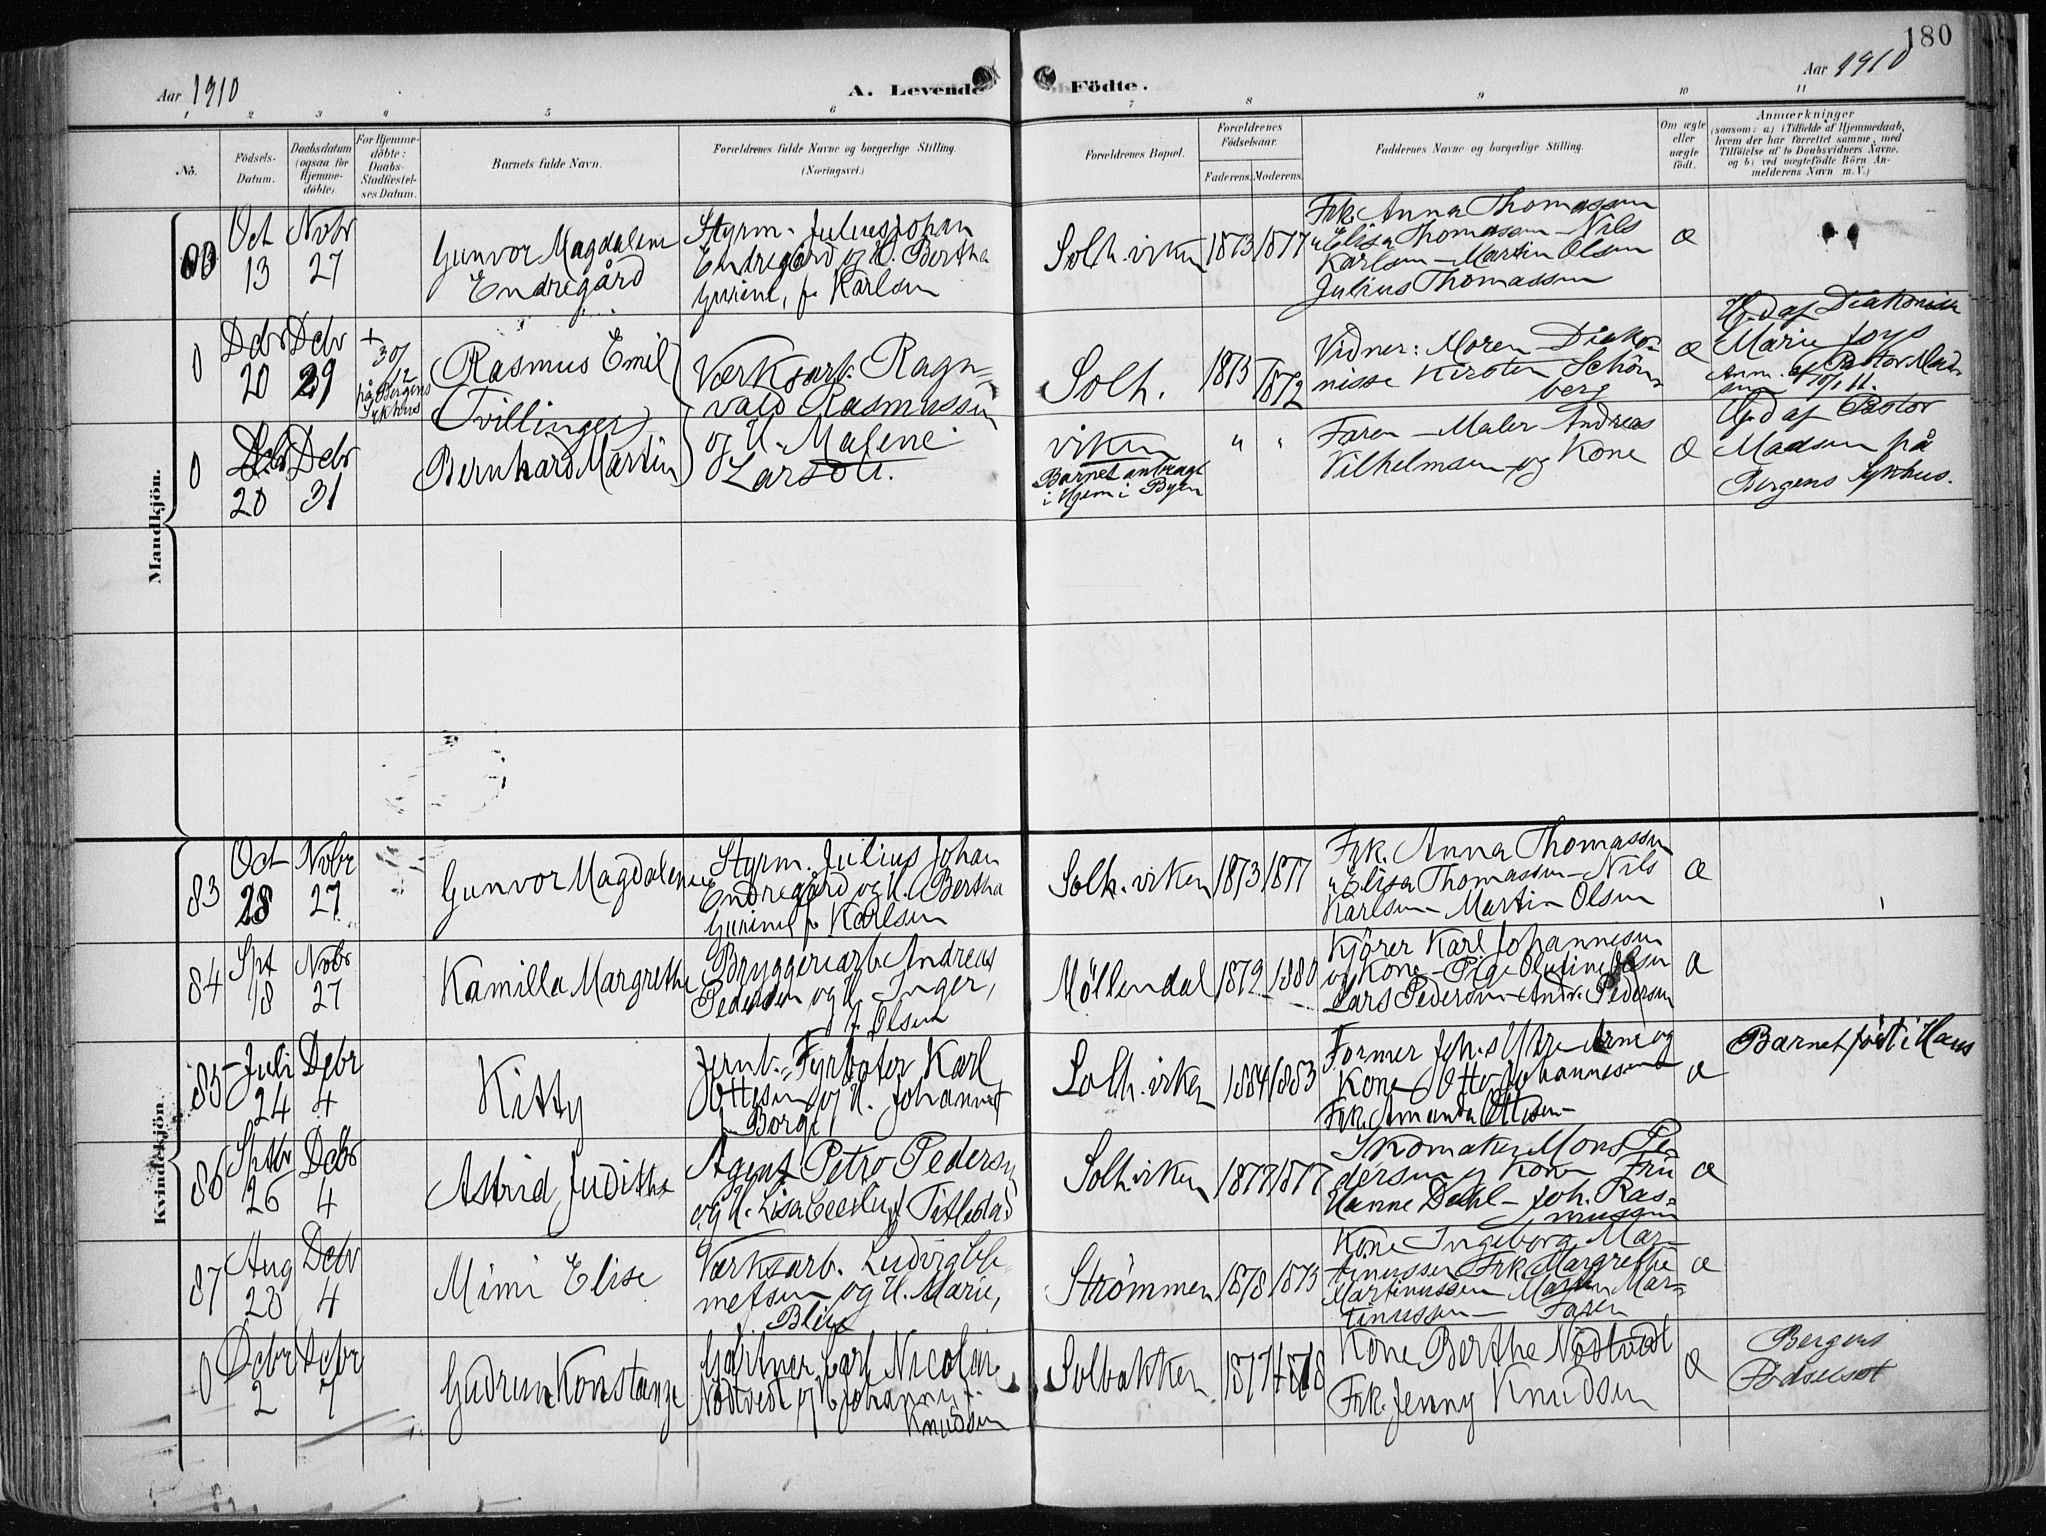 180
Aar 1910
A. Levende Födte.
Aar 1910
1 2 3 4 5 6 7 8 9 10 11
No.
Födsels-
Datum.
Daabsdatum
(ogsaa for
Hjemme-
döbte)
For Hjemme-
döbte:
Daabs-
Stadfæstel-
ses Datum.
Barnets fulde Navn.
Forældrenes fulde Navne og borgerlige Stilling.
(Næringsvei.)
Forældrenes Bopæl.
Forældrenes
Födselsaar.
Faderens. Moderens.
Faddernes Navne og borgerlige Stilling.
Om ægte
eller
uægte
født.
Anmærkninger
(saasom: a) i Tilfælde af Hjemmedaab,
hvem der har forrettet samme, med
Tilföielse af to Daabsvidners Navne.
og b) ved uægtefödte Börn An-
melderens Navn m. V.)
Mandkjön.
Oct
13
Nvbr
27
Gunvor Magdalene
Endregård
Styrm. Julius Johan
Endregård og H. Bertha
Gurine, f. Karlsen
Solh.viken
1873
1877
Frk. Anna Thomassen
" Elisa Thomassen – Nils
Karlsen – Martin Olsen
Julius Thomassen
æ
0
Dcbr
20
Dcbr
29
+
30/
12
på Bergens
Sykhus
Rasmus Emil
(Tvillinger)
Værksarb. Ragn-
vald Rasmussen
Solh.
1873
1872
Vidner: Moren Diako-
nisse Kirsten Schön-
berg
æ
Hjd af Diakonisse
Marie Joys
Anm. af Pastor Mad-
sen 10/1 11.
0
Dcbr
20
Dcbr
31
Bernhard Martin
og H. Malene
Larsen.
viken
Barnet anbragt
i Hjem i Byen
" "
Faren – Maler Andreas
Vilhelmsen og Kone
æ
Hjd af Pastor
Madsen på
Bergens Sykhus.
Kvindekjön.
83
Oct
28
Nvbr
27
Gunvor Magdalene
Styrm. Julius Johan
Endregård og H. Bertha
Gurine f. Karlsen
Solh.viken
1873
1877
Frk. Anna Thomassen
" Elisa Thomassen – Nils
Karlsen – Martin Olsen
æ
84
Spt
18
Nvbr
27
Kamilla Margrethe
Bryggeriarb. Andreas
Pedersen og H. Inger,
f. Olsen
Møllendal
1872
1880
Kjörer Karl Johannesen
og Kone – Pige Olufine
Lars Pedersen – Andr. Pedersen
æ
85
Juli
24
Dcbr
4
Kitty
Jernb.- Fyrbøter Karl
Ottesen og H. Johanne f
Borge
Solh.viken
1884
1883
Former Johs
Kone – Otto Johannesen
Frk. Amanda Ottesen
æ
Barnet født i Haus
86
Sptbr
26
Dcbr
4
Astrid Judithe
Agent Petro Pedersen
og H. Lisa Cecilie f Titlestad
Solh.viken
1877
1877
Skomaker Mons Pe-
dersen og Kone Fru
Hanne Dahl – Joh. Ras-
mussen
æ
87
Aug
20
Dcbr
4
Mimi Elise
Værksarb. Ludvig Cle-
metsen og H. Marie,
Blix
Strømmen
1878
1873
Kone Ingeborg Mar-
tinussen Frk. Margrethe
Martinussen Martin Mar-
tinussen – Faren
æ
0
Dcbr
2
Dcbr
7
Gudrun Konstanze
Gartner Carl Nicolai
Nödtvedt og H Johanne f.
Knudsen
Solbakken
1877
1878
Kone Berthe Nödtvedt
Frk. Jenny Knudsen
æ
Bergens
Födselsst